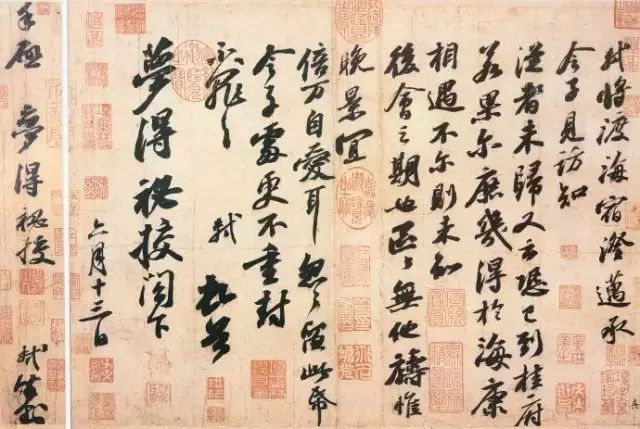 軾將渡海宿澄邁承
令子見訪知
從者未歸又云恐已到桂府
若果尔庶幾得於海康
相遇不尔則未知
後會之期也區〻無他禱惟
晚景宜
倍万自愛耳忽〻留此帋
令子處更不重封
不罪〻
軾頓首
夢得秘校閣下
六月十三日
手啟 夢得秘校
軾封